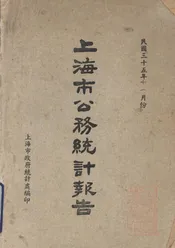 民國三十五年十一月份
上海市公務統計報告
上海市政府統計處編印